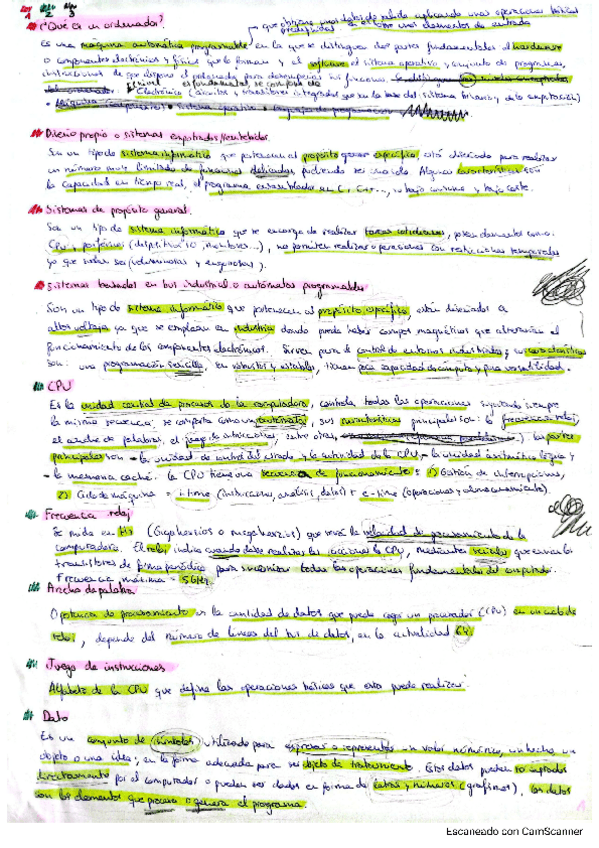 ¿Qué es un ordenador?
Es una máquina automática programable en la que se distinguen dos partes fundamentales el hardware
o componentes electrónicos y físicos que lo forman y el software el sistema operativo y conjunto de programas,
instrucciones de que dispone el ordenador para desempeñar sus funciones.
Diseño propio o sistemas empotrados/embebidos.
Son un tipo de sistema informático que pertenecen al propósito específico, está diseñado para realizar
un número muy limitado de funciones dedicadas pudiendo ser una sola. Algunas características son
la capacidad en tiempo real, el programa ensamblador en C, C++..., y bajo coste.
Sistemas de propósito general.
Son un tipo de sistema informático que se encarga de realizar tareas cotidianas, poseen elementos como:
CPU, periféricos (monitores...), no permiten realizar operaciones con restricciones temporales
ya que suelen ser (voluminosas y engorrosas).
Sistemas basados en bus industrial o autómatas programables
Son un tipo de sistema informático que pertenecen al propósito específico, están diseñados a
altos voltajes ya que se emplean en industria donde puede haber campos magnéticos que alteran el
funcionamiento de los componentes electrónicos. Sirven para el control de entornos industriales y sus características
son: una programación sencilla, robustos y estables, tienen poca capacidad de computo y poca versatilidad.
CPU
Es la unidad central de proceso de la computadora, controla todas las operaciones siguiendo siempre
la misma secuencia: se comporta como un autómata, sus características principales son: la frecuencia reloj,
el ancho de palabras, el juego de instrucciones, entre otras, las partes
principales son = la unidad de control del estado y la actividad de la CPU, la unidad aritmético lógica y
la memoria caché. La CPU tiene una secuencia de funcionamiento: 1) Gestión de interrupciones,
2) Ciclo de máquina = i-time (instrucciones, análisis, datos) + e-time (operaciones y almacenamiento).
Frecuencia reloj
Se mide en Hz (Gigahercios o megahercios) que marca la velocidad de procesamiento de la
computadora. El reloj indica cuando debe realizar las acciones la CPU, mediante señales que envían los
transistores de forma periódica para sincronizar todas las operaciones fundamentales del ordenador.
Frecuencia máxima = 5GHz
Ancho de palabra
O potencia de procesamiento es la cantidad de datos que puede coger un procesador (CPU) en un ciclo de
reloj, depende del número de líneas del bus de datos, en la actualidad 64.
Juego de instrucciones
Alfabeto de la CPU que define las operaciones básicas que esta puede realizar.
Dato
Es un conjunto de símbolos utilizado para expresar o representar un valor numérico, un hecho, un
objeto o una idea; en la forma adecuada para ser objeto de tratamiento. Estos datos pueden ser captados
directamente por el computador o pueden ser dados en forma de letras y números (grafismos). Los datos
son los elementos que procesa o genera el programa.
Escaneado con CamScanner